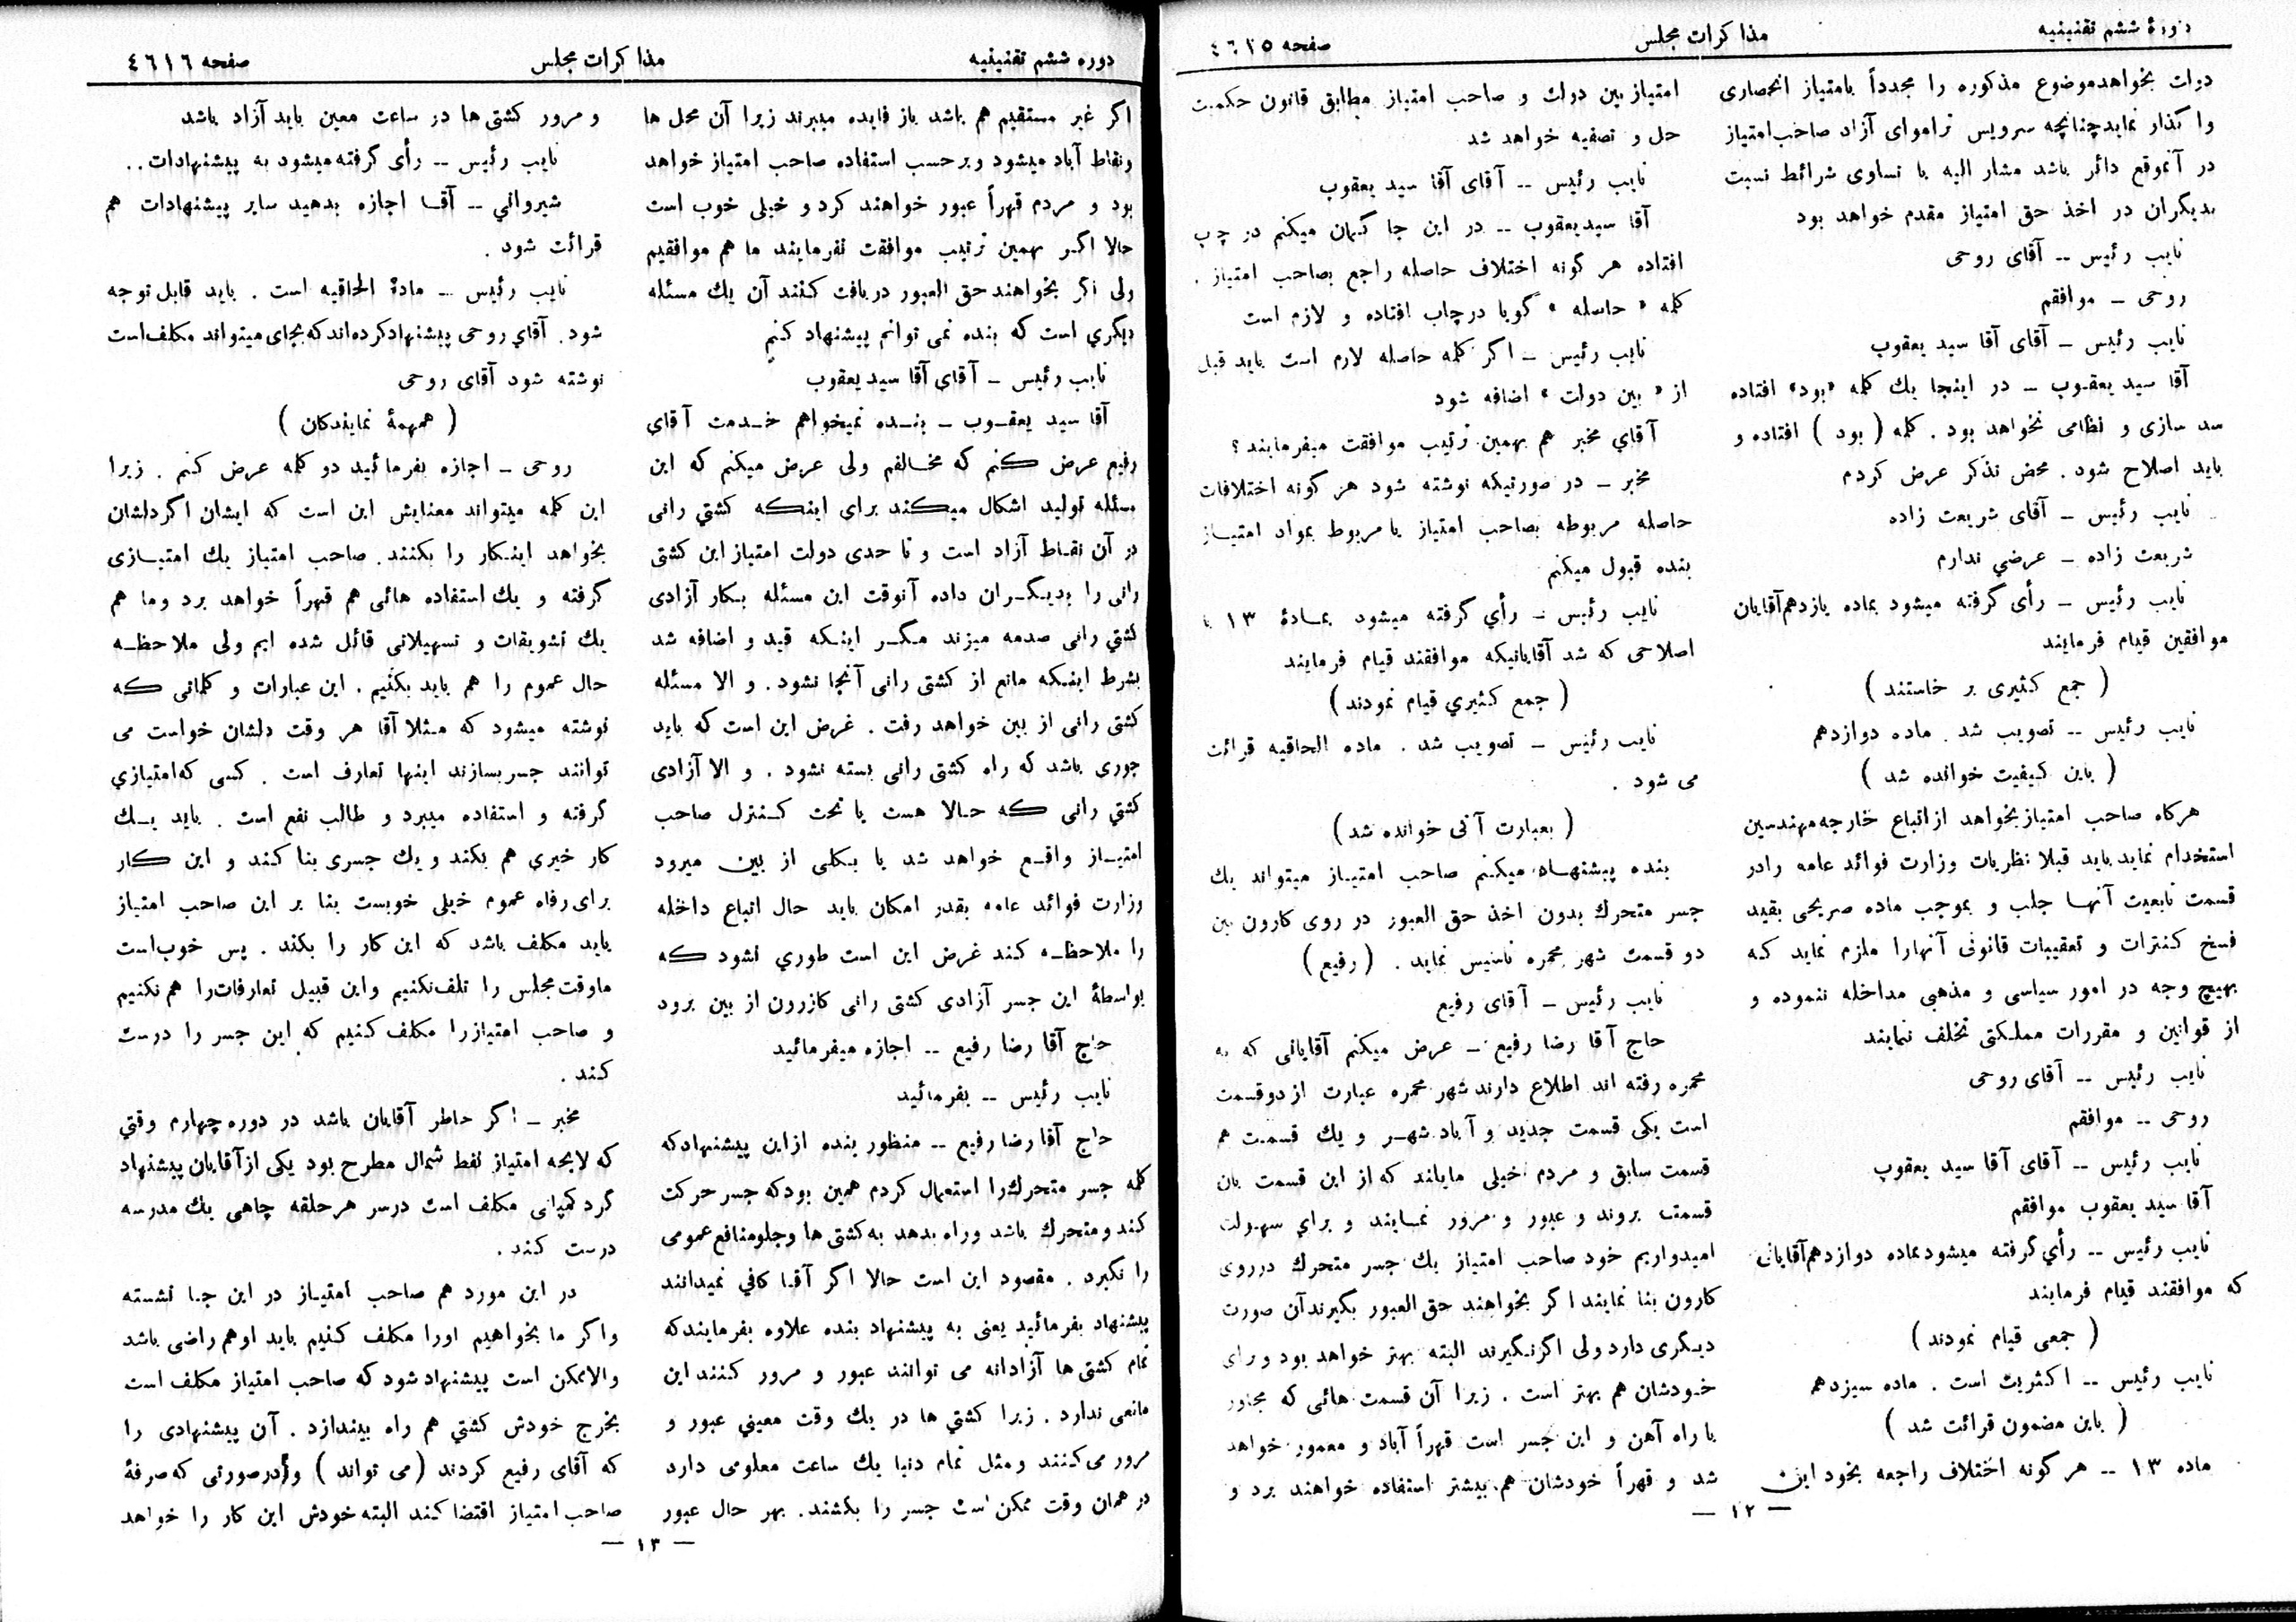 دورهٔ ششم تقنینیه
مذاکرات مجلس
صفحه ٤٦١٥
دولت بخواهد موضوع مذکوره را مجدداً بامتیاز انحصاری
واگذار نماید چنانچه سرویس تراموای آزاد صاحب امتیاز
در آنموقع دائر باشد مشار الیه با تساوی شرائط نسبت
بدیگران در اخذ حق امتیاز مقدم خواهد بود
نایب رئیس -- آقای روحی
روحی - موافقم
نایب رئیس - آقای آقا سید یعقوب
آقا سید یعقوب - در اینجا یك کلمه «بود» افتاده
سد سازی و نظامی نخواهد بود . کلمه ( بود ) افتاده و
باید اصلاح شود . محض تذکر عرض کردم
نایب رئیس - آقای شریعت زاده
شریعت زاده - عرضی ندارم
نایب رئیس - رأی گرفته میشود بماده یازدهم آقایان
موافقین قیام فرمایند
( جمع کثیری بر خاستند )
نایب رئیس -- تصویب شد . ماده دوازدهم
( باین کیفیت خوانده شد )
هرگاه صاحب امتیاز بخواهد از اتباع خارجه مهندسین
استخدام نماید باید قبلا نظریات وزارت فوائد عامه را در
قسمت تابعیت آنها جلب و بموجب ماده صریحی بقید
فسخ کنترات و تعقیبات قانونی آنهارا ملزم نماید که
بهیچ وجه در امور سیاسی و مذهبی مداخله ننموده و
از قوانین و مقررات مملکتی تخلف ننمایند
نایب رئیس -- آقای روحی
روحی -- موافقم
نایب رئیس -- آقای آقا سید یعقوب
آقا سید یعقوب موافقم
نایب رئیس -- رأی گرفته میشود بماده دوازدهم آقایانی
که موافقند قیام فرمایند
( جمعی قیام نمودند )
نایب رئیس -- اکثریت است . ماده سیزدهم
( باین مضمون قرائت شد )
ماده ١٣ -- هر گونه اختلاف راجعه بخود این
امتیاز بین دولت و صاحب امتیاز مطابق قانون حکمیت
حل و تصفیه خواهد شد
نایب رئیس -- آقای آقا سید یعقوب
آقا سید یعقوب -- در این جا گمان میکنم در چپ
افتاده هر گونه اختلاف حاصله راجع بصاحب امتیاز .
کلمه « حاصله » گویا در چاپ افتاده و لازم است
نایب رئیس - اگر کلمه حاصله لازم است باید قبل
از « بین دولت » اضافه شود
آقای مخبر هم بهمین ترتیب موافقت میفرمایند ؟
مخبر - در صورتیکه نوشته شود هر گونه اختلافات
حاصله مربوطه بصاحب امتیاز یا مربوط بمواد امتیاز
بنده قبول میکنم
نایب رئیس - رأی گرفته میشود بمادهٔ ١٣ با
اصلاحی که شد آقایانیکه موافقند قیام فرمایند
( جمع کثیری قیام نمودند )
نایب رئیس - تصویب شد . ماده الحاقیه قرائت
می شود .
( بعبارت آتی خوانده شد )
بنده پیشنهاد میکنم صاحب امتیاز میتواند یك
جسر متحرك بدون اخذ حق العبور در روی کارون بین
دو قسمت شهر محمره تأسیس نماید . ( رفیع )
نایب رئیس - آقای رفیع
حاج آقا رضا رفیع - عرض میکنم آقایانی که به
محمره رفته اند اطلاع دارند شهر محمره عبارت از دو قسمت
است یکی قسمت جدید و آباد شهر و یك قسمت هم
قسمت سابق و مردم خیلی مایلند که از این قسمت بان
قسمت بروند و عبور و مرور نمایند و برای سهولت
امیدواریم خود صاحب امتیاز یك جسر متحرك در روی
کارون بنا نمایند اگر بخواهند حق العبور بگیرند آن صورت
دیگری دارد ولی اگر نگیرند البته بهتر خواهد بود و برای
خودشان هم بهتر است . زیرا آن قسمت هائی که مجاور
با راه آهن و این جسر است قهراً آباد و معمور خواهد
شد و قهراً خودشان هم بیشتر استفاده خواهند برد و
— ١٢ —
دوره ششم تقنینیه
مذاکرات مجلس
صفحه ٤٦١٦
اگر غیر مستقیم هم باشد باز فایده میبرند زیرا آن محل ها
ونقاط آباد میشود و برحسب استفاده صاحب امتیاز خواهد
بود و مردم قهراً عبور خواهند کرد و خیلی خوب است
حالا اگر بهمین ترتیب موافقت بفرمایند ما هم موافقیم
ولی اگر بخواهند حق العبور دریافت کنند آن یك مسئله
دیگری است که بنده نمی توانم پیشنهاد کنم
نایب رئیس - آقای آقا سید یعقوب
آقا سید یعقوب - بنده نمیخواهم خدمت آقای
رفیع عرض کنم که مخالفم ولی عرض میکنم که این
مسئله تولید اشکال میکند برای اینکه کشتی رانی
در آن نقاط آزاد است و تا حدی دولت امتیاز این کشتی
رانی را بدیگران داده آنوقت این مسئله بکار آزادی
کشتی رانی صدمه میزند مگر اینکه قید و اضافه شد
بشرط اینکه مانع از کشتی رانی آنجا نشود . و الا مسئله
کشتی رانی از بین خواهد رفت . غرض این است که باید
جوری باشد که راه کشتی رانی بسته نشود . و الا آزادی
کشتی رانی که حالا هست یا تحت کنترل صاحب
امتیاز واقع خواهد شد یا بکلی از بین میرود
وزارت فوائد عامه بقدر امکان باید حال اتباع داخله
را ملاحظه کند غرض این است طوری نشود که
بواسطهٔ این جسر آزادی کشتی رانی کازرون از بین برود
حاج آقا رضا رفیع -- اجازه میفرمائید
نایب رئیس -- بفرمائید
حاج آقا رضا رفیع -- منظور بنده از این پیشنهاد که
کلمه جسر متحرك را استعمال کردم همین بود که جسر حرکت
کند و متحرك باشد و راه بدهد به کشتی ها و جلو منافع عمومی
را نگیرد . مقصود این است حالا اگر آقا کافی نمیدانند
پیشنهاد بفرمائید یعنی به پیشنهاد بنده علاوه بفرمایند که
تمام کشتی ها آزادانه می توانند عبور و مرور کنند این
مانعی ندارد . زیرا کشتی ها در یك وقت معینی عبور و
مرور می کنند و مثل تمام دنیا یك ساعت معلومی دارد
در همان وقت ممکن است جسر را بکشند . بهر حال عبور
و مرور کشتی ها در ساعت معین باید آزاد باشد
نایب رئیس -- رأی گرفته میشود به پیشنهادات . .
شیروانی -- آقا اجازه بدهید سایر پیشنهادات هم
قرائت شود .
نایب رئیس -- مادهٔ الحاقیه است . باید قابل توجه
شود . آقای روحی پیشنهاد کرده اند که بجای میتواند مکلف است
نوشته شود آقای روحی
( همهمهٔ نمایندگان )
روحی - اجازه بفرمائید دو کلمه عرض کنم . زیرا
این کلمه میتواند معنایش این است که ایشان اگر دلشان
بخواهد اینکار را بکنند . صاحب امتیاز یك امتیازی
گرفته و یك استفاده هائی هم قهراً خواهد برد وما هم
یك تشویقات و تسهیلاتی قائل شده ایم ولی ملاحظه
حال عموم را هم باید بکنیم . این عبارات و کلماتی که
نوشته میشود که مثلا آقا هر وقت دلشان خواست می
توانند جسر بسازند اینها تعارف است . کسی که امتیازی
گرفته و استفاده میبرد و طالب نفع است . باید یك
کار خیری هم بکند و یك جسری بنا کند و این کار
برای رفاه عموم خیلی خوبست بنا بر این صاحب امتیاز
باید مکلف باشد که این کار را بکند . پس خوب است
ما وقت مجلس را تلف نکنیم و این قبیل تعارفات را هم نکنیم
و صاحب امتیاز را مکلف کنیم که این جسر را درست
کند .
مخبر - اگر خاطر آقایان باشد در دوره چهارم وقتی
که لایحه امتیاز نفط شمال مطرح بود یکی از آقایان پیشنهاد
کرد کمپانی مکلف است در سر هر حلقه چاهی یك مدرسه
درست کند .
در این مورد هم صاحب امتیاز در این جا نشسته
واگر ما بخواهیم اورا مکلف کنیم باید او هم راضی باشد
والا ممکن است پیشنهاد شود که صاحب امتیاز مکلف است
بخرج خودش کشتی هم راه بیندازد . آن پیشنهادی را
که آقای رفیع کردند (می تواند ) و در صورتی که صرفهٔ
صاحب امتیاز اقتضا کند البته خودش این کار را خواهد
— ١٣ —